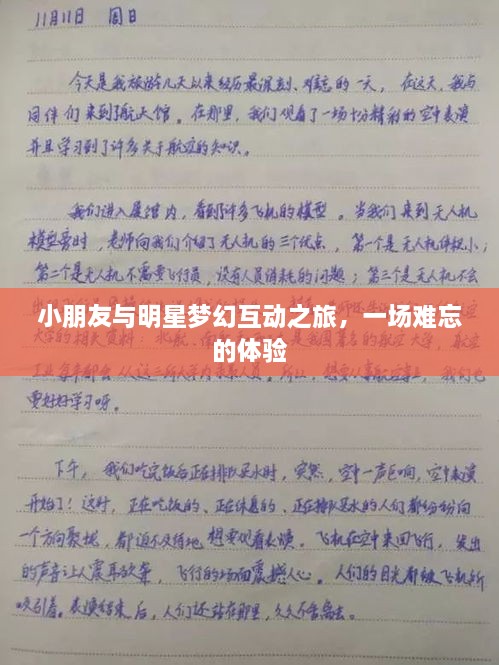 11月11日 周日
今天是我旅游几天以来经历最深刻、难忘的一天，在这天，我与
同伴们来到了航天馆。在那里，我们观看了一场十分精彩的空中表演
并且学习到了许多关于航空的知识。
我们进入展馆内，看到许多飞机的模型。当我们来到无人机
模型旁时，老师向我们介绍了无人机的三个优点，第一个是无人机体积小；
第二个是无人机不需要飞行员，没有人员消耗的问题；第三个是无人机不会
小朋友与明星梦幻互动之旅，一场难忘
的体验
要好好学习呀。
下午，我们吃完饭后正在排队买水时，突然，空中一声巨响，空中表演
开始了！这时，正在吃饭的、正在休息的、正在排队买水的人们都纷纷向
一个方向聚拢，都迫不及待地想要观看表演。飞机在空中来回飞行，发出
的声音让人震耳欲聋，飞行的场面震撼人心。人们的目光都被飞机所
吸引着。表演结束后，人们还站在那里，久久不舍离去。